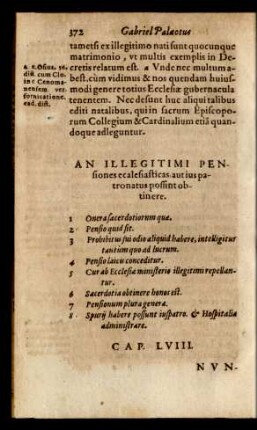 372 Gabriel Palæotus
tametsi ex illegitimo nati sunt quocunque
matrimonio, vt multis exemplis in De-
cretis relatum est. a Vnde nec multum a-
best, cùm vidimus & nos quendam huius-
modi genere totius Ecclesiæ gubernacula
tenentem. Nec desunt huc aliqui talibus
editi natalibus, qui in sacrum Episcopo-
rum Collegium & Cardinalium etiã quan-
doque adleguntur.
a. c. Osius. 56.
dist. cum Clo-
in c Cenoma-
nensem. ver.
fornicatione.
ead. dist.
AN ILLEGITIMI PEN-
siones ecclesiasticas aut ius pa-
tronatus possint ob-
tinere.
1 Onera sacerdotiorum quæ.
2 Pensio quid sit.
3 Prohibitus sui odio aliquid habere, intelligitur
tantùm quo ad lucrum.
4 Pensio laico conceditur.
5 Cur ab Ecclesiæ ministerio illegitimi repellan-
tur.
6 Sacerdotia obtinere honos est.
7 Pensionum plura genera.
8 Spurij habere possunt iuspatro. & Hospitalia
administrare.
CAP. LVIII.
NVN-